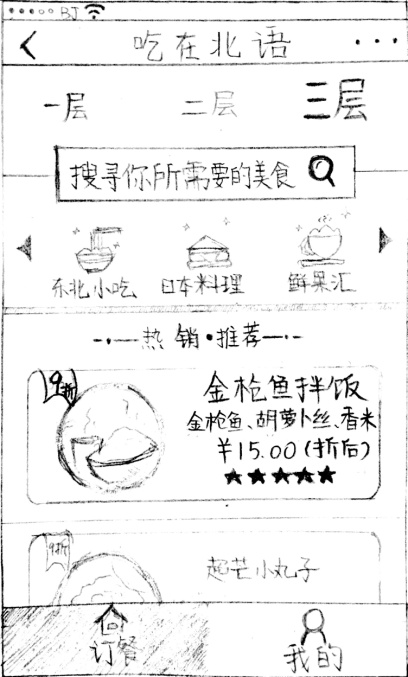 BJ
吃在北语
一层 二层 三层
搜寻你所需要的美食
东北小吃 日本料理 鲜果汇
热销·推荐
9折
金枪鱼拌饭
金枪鱼、胡萝卜丝、香米
¥15.00(折后)
9折
超芒小丸子
订餐 我的